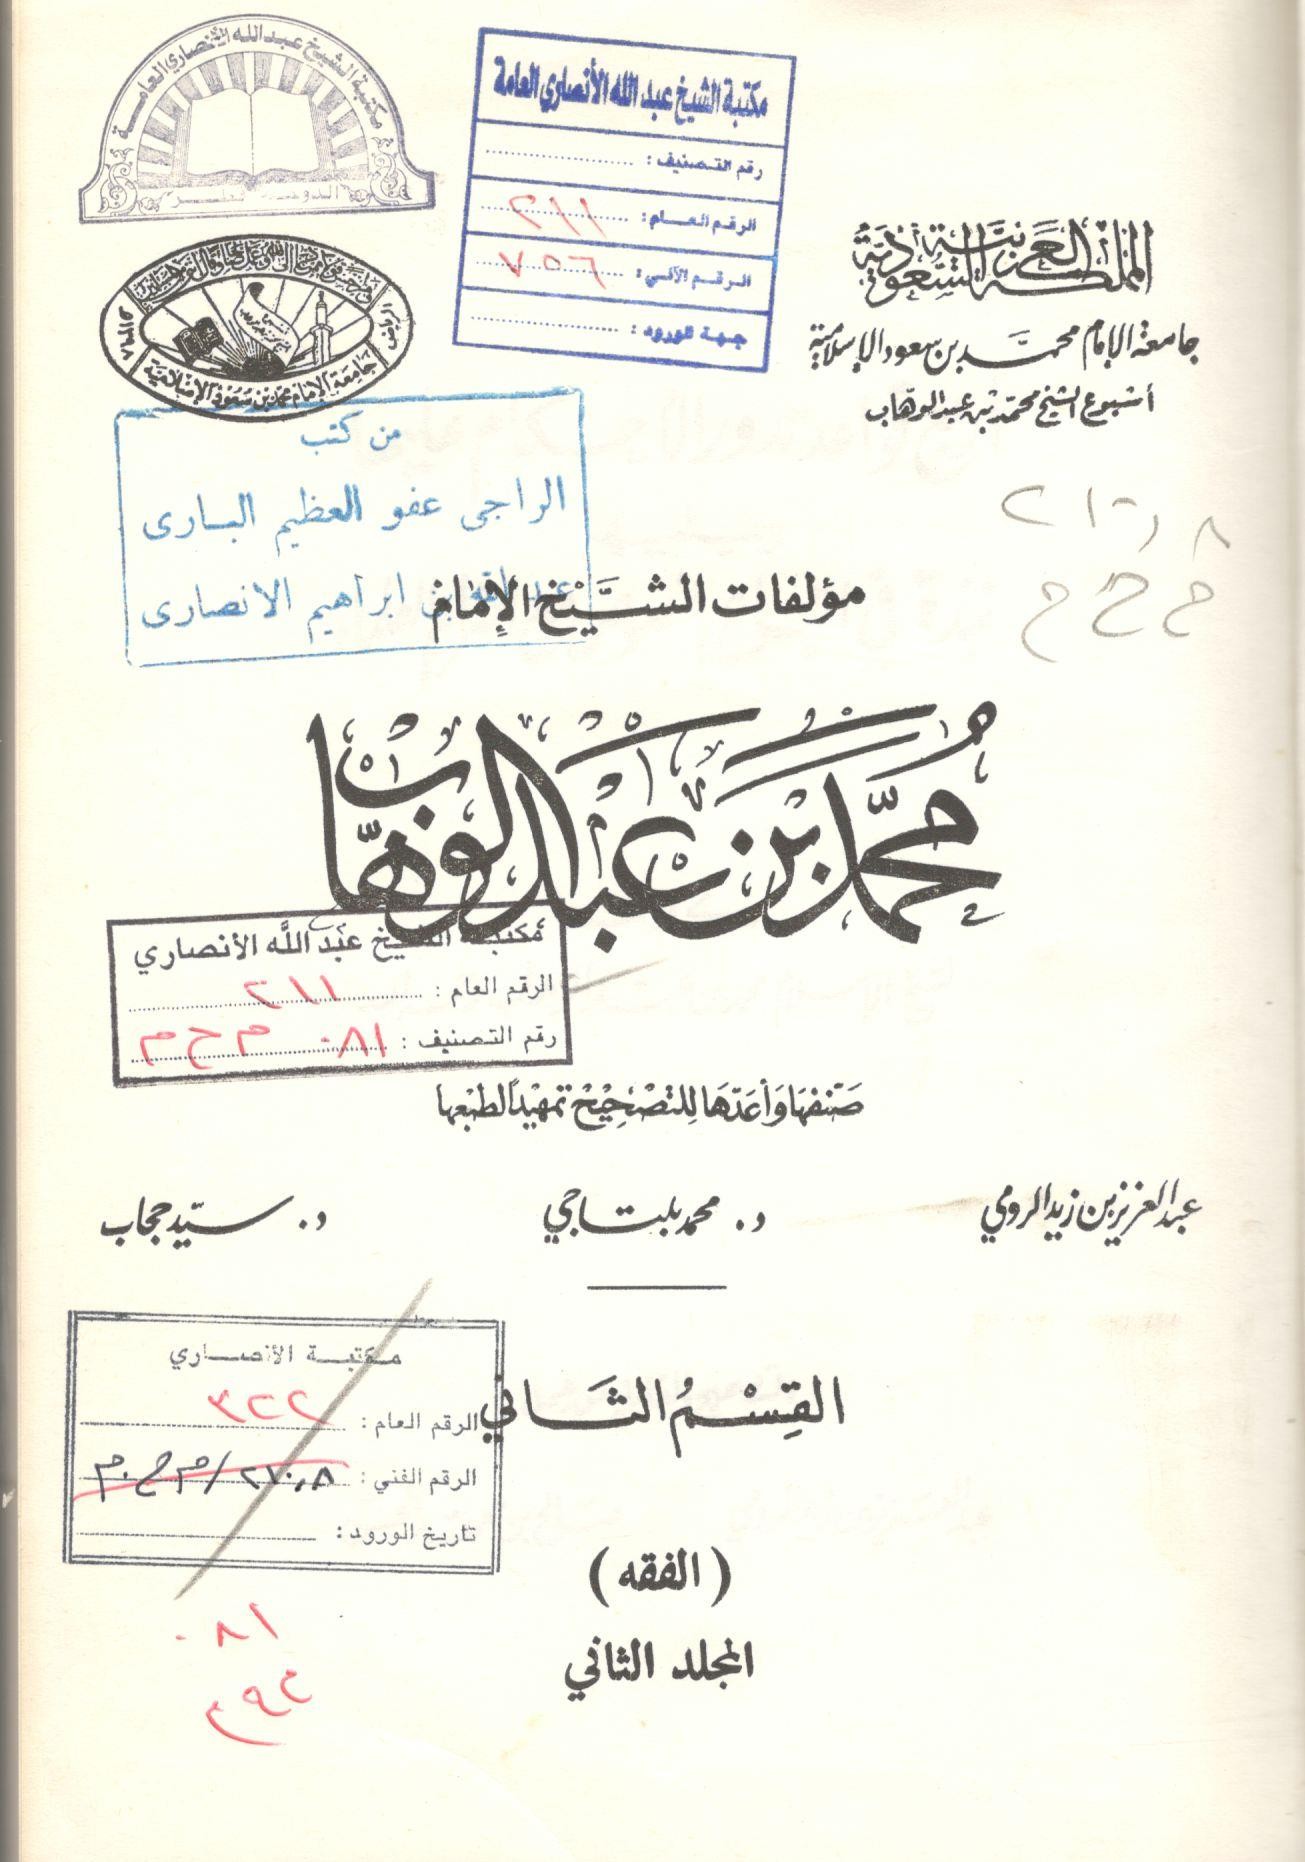 مكتبة الشيخ عبدالله الأنصاري العامة
مكتبة الشيخ عبد الله الأنصاري العامة
رقم التصنيف :
الرقم العام : ٢١١
الرقم الآلي : ٧٥٦
جهة الورود :
المملكة العربية السعودية
جامعة الإمام محمد بن سعود الإسلامية
أسبوع الشيخ محمد بن عبد الوهاب
جامعة الإمام محمد بن سعود الإسلامية
من كتب
الراجى عفو العظيم البارى
عبد الله بن ابراهيم الانصارى
م ح م
مؤلفات الشيخ الإمام
محمد بن عبد الوهاب
مكتبة الشيخ عبد الله الأنصاري
الرقم العام : ٢١١
رقم التصنيف : ١٨٠ م ح م
صنفها وأعدها للتصحيح تمهيداً لطبعها
عبد العزيز بن زيد الرومي
د. محمد بلتاجي
د. سيد حجاب
مكتبة الأنصاري
الرقم العام : ٢٢٣
الرقم الفني : ٢٧٠,٨ / م ح . م
تاريخ الورود :
القسم الثاني
( الفقه )
المجلد الثاني
١٨٠